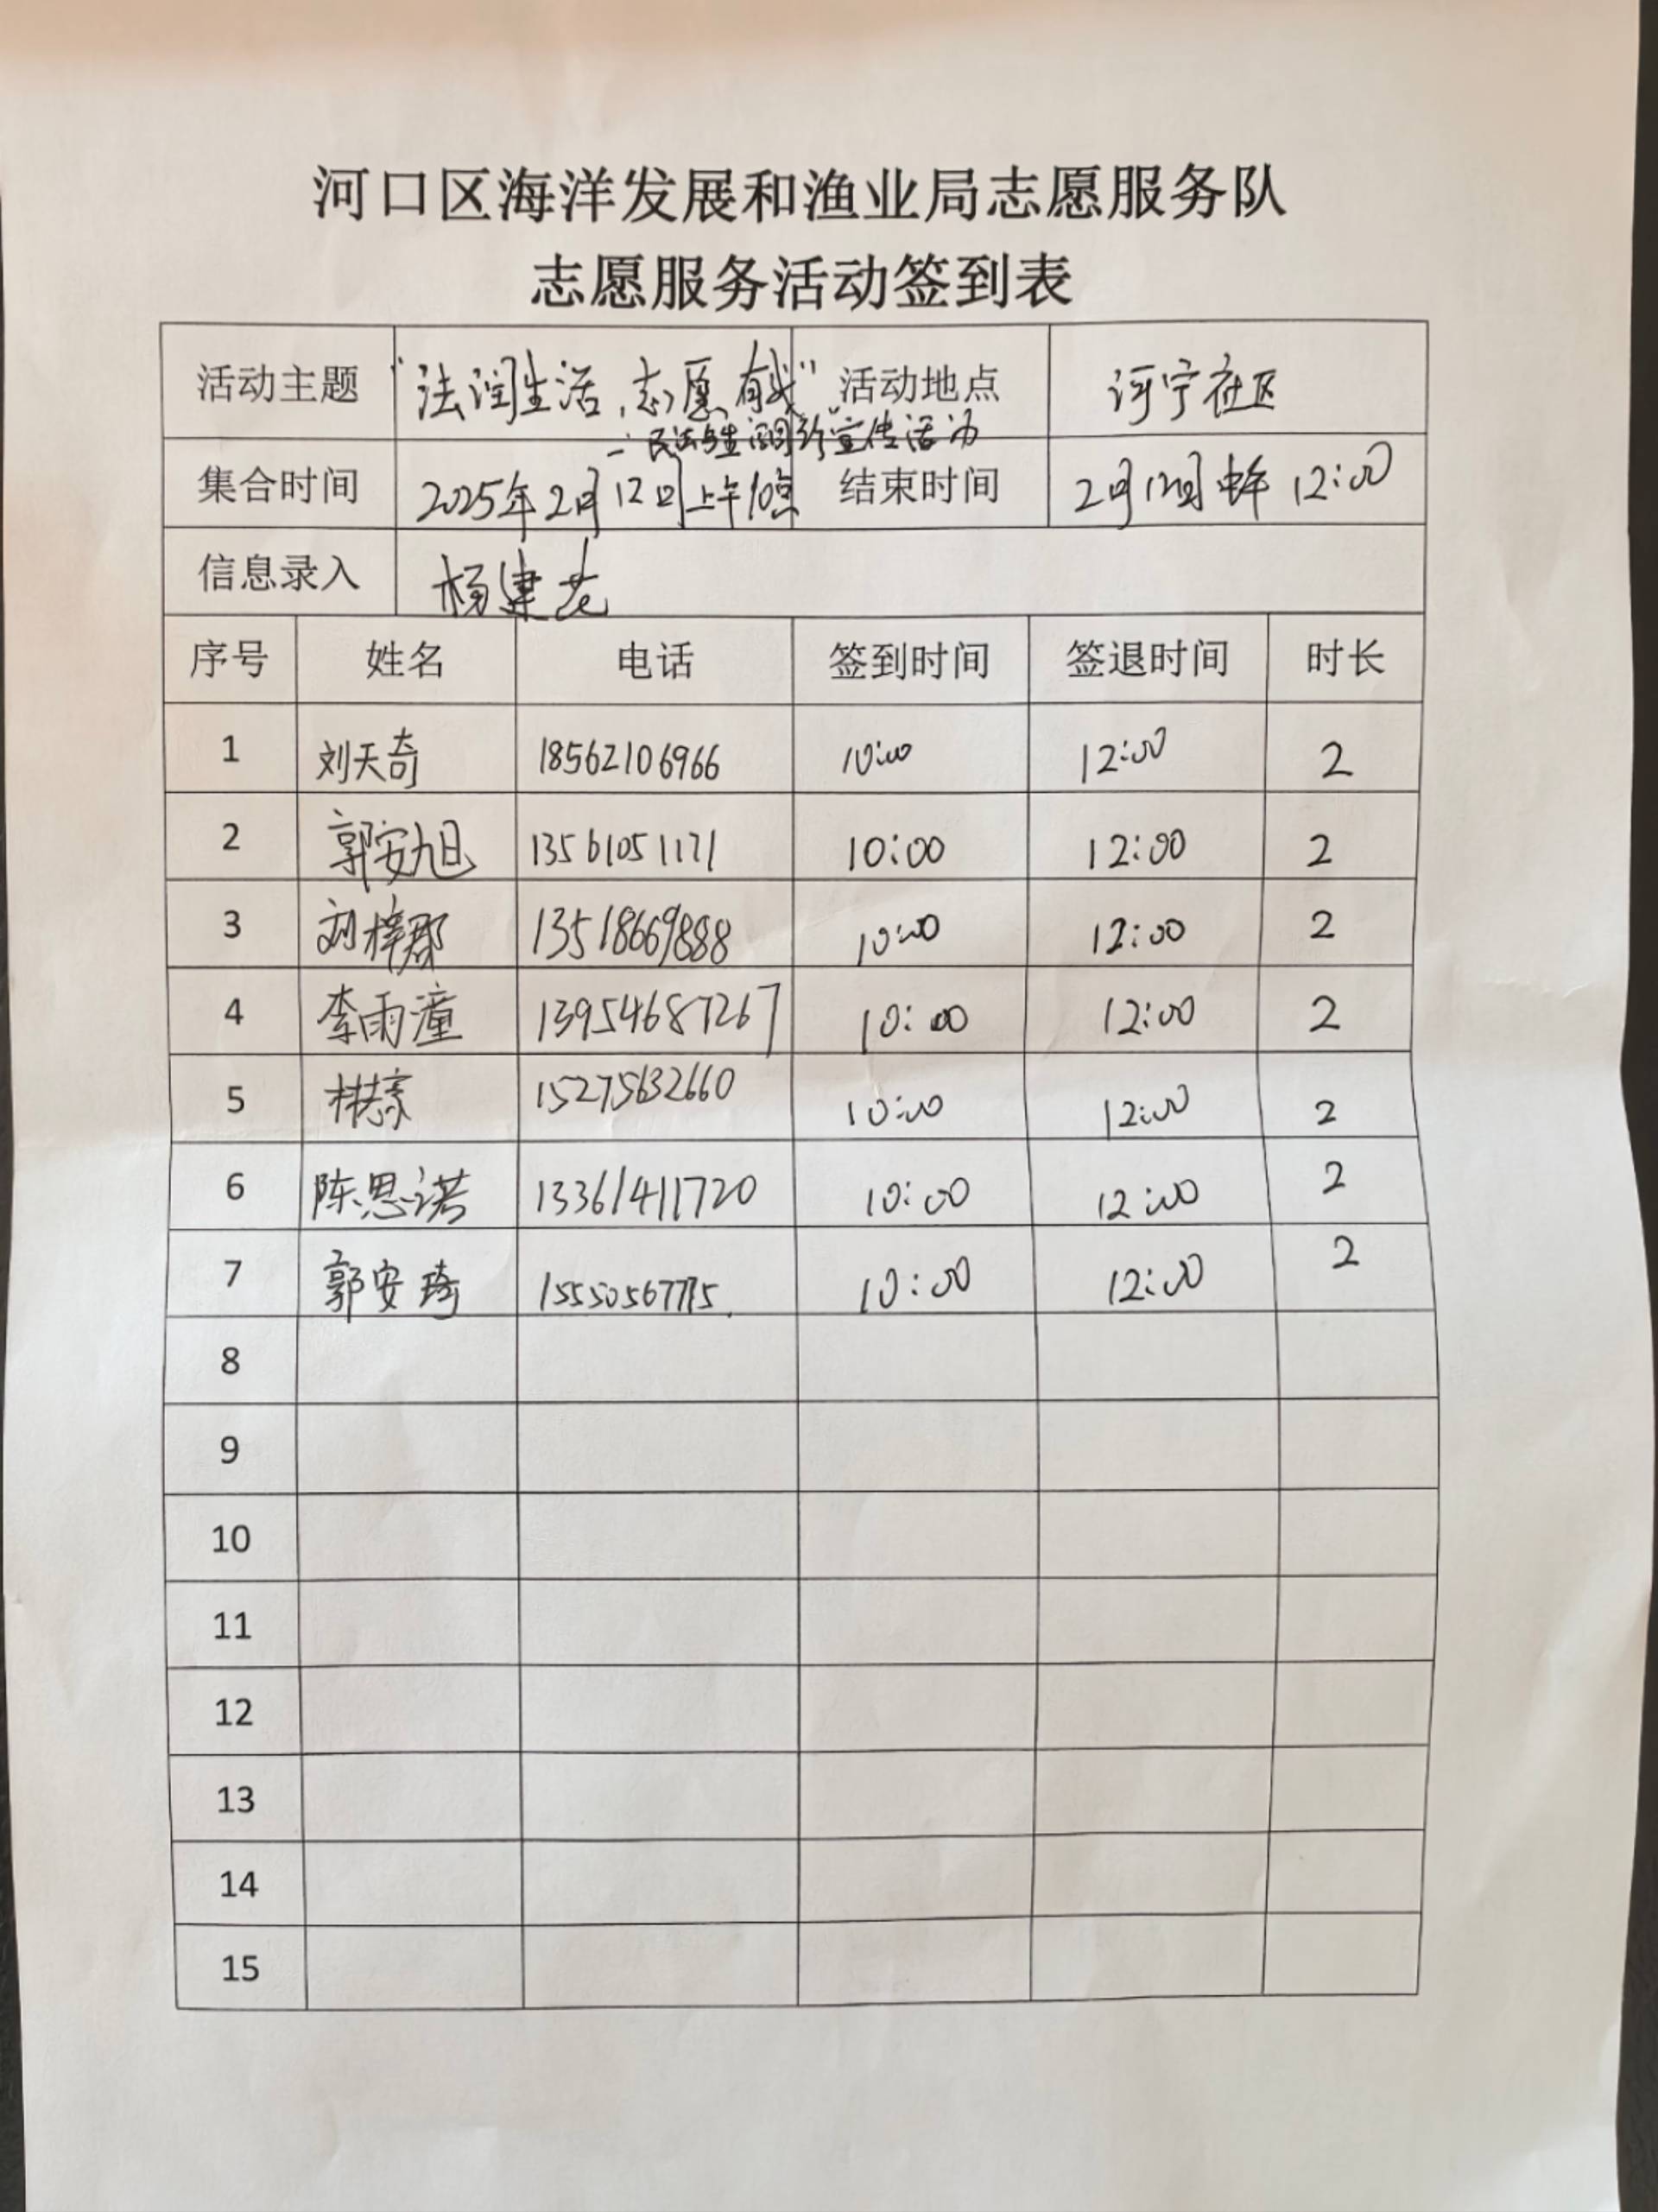 河口区海洋发展和渔业局志愿服务队
志愿服务活动签到表
活动主题 “法润生活,志愿有我” 活动地点 河宁社区
宣传活动
集合时间 2025年2月12日上午10点 结束时间 2月12日 中午 12:00
信息录入 杨建
序号 姓名 电话 签到时间 签退时间 时长
1 刘天奇 18562106966 10:00 12:00 2
2 郭安旭 13561051171 10:00 12:00 2
3 刘梓郡 13518669888 10:00 12:00 2
4 李雨潼 13954687267 10:00 12:00 2
5 15275632660 10:00 12:00 2
6 陈思诺 13361411720 10:00 12:00 2
7 郭安琦 10:00 12:00 2
8
9
10
11
12
13
14
15